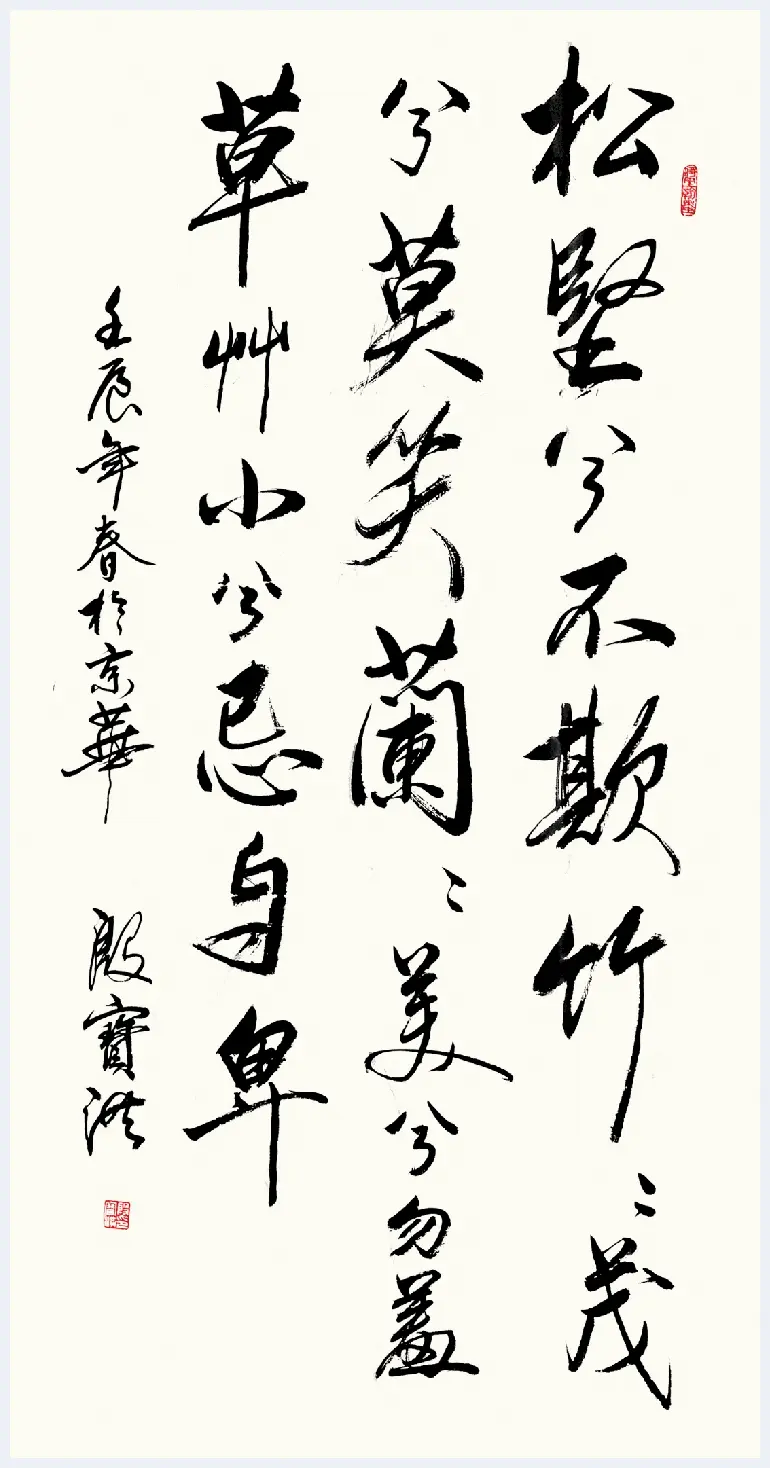 松堅兮不欺竹〻茂
兮莫笑蘭〻美兮勿羞
草艸小兮忌自卑
壬辰年春於京華 殷寶洪